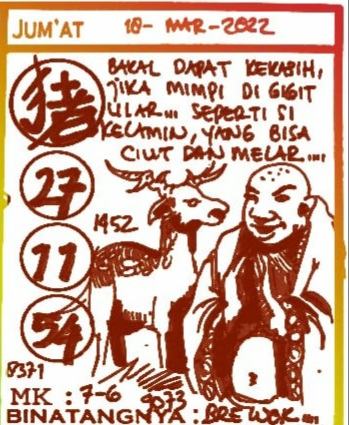 JUM'AT 18- MAR-2022
BAKAL DAPAT KEKASIH,
JIKA MIMPI DI GIGIT
ULAR... SEPERTI SI
KELAMIN, YANG BISA
CIUT DAN MELAR....
猪
27
1952
11
54
8371
MK : 7-6
9073
BINATANGNYA : BREWOK....